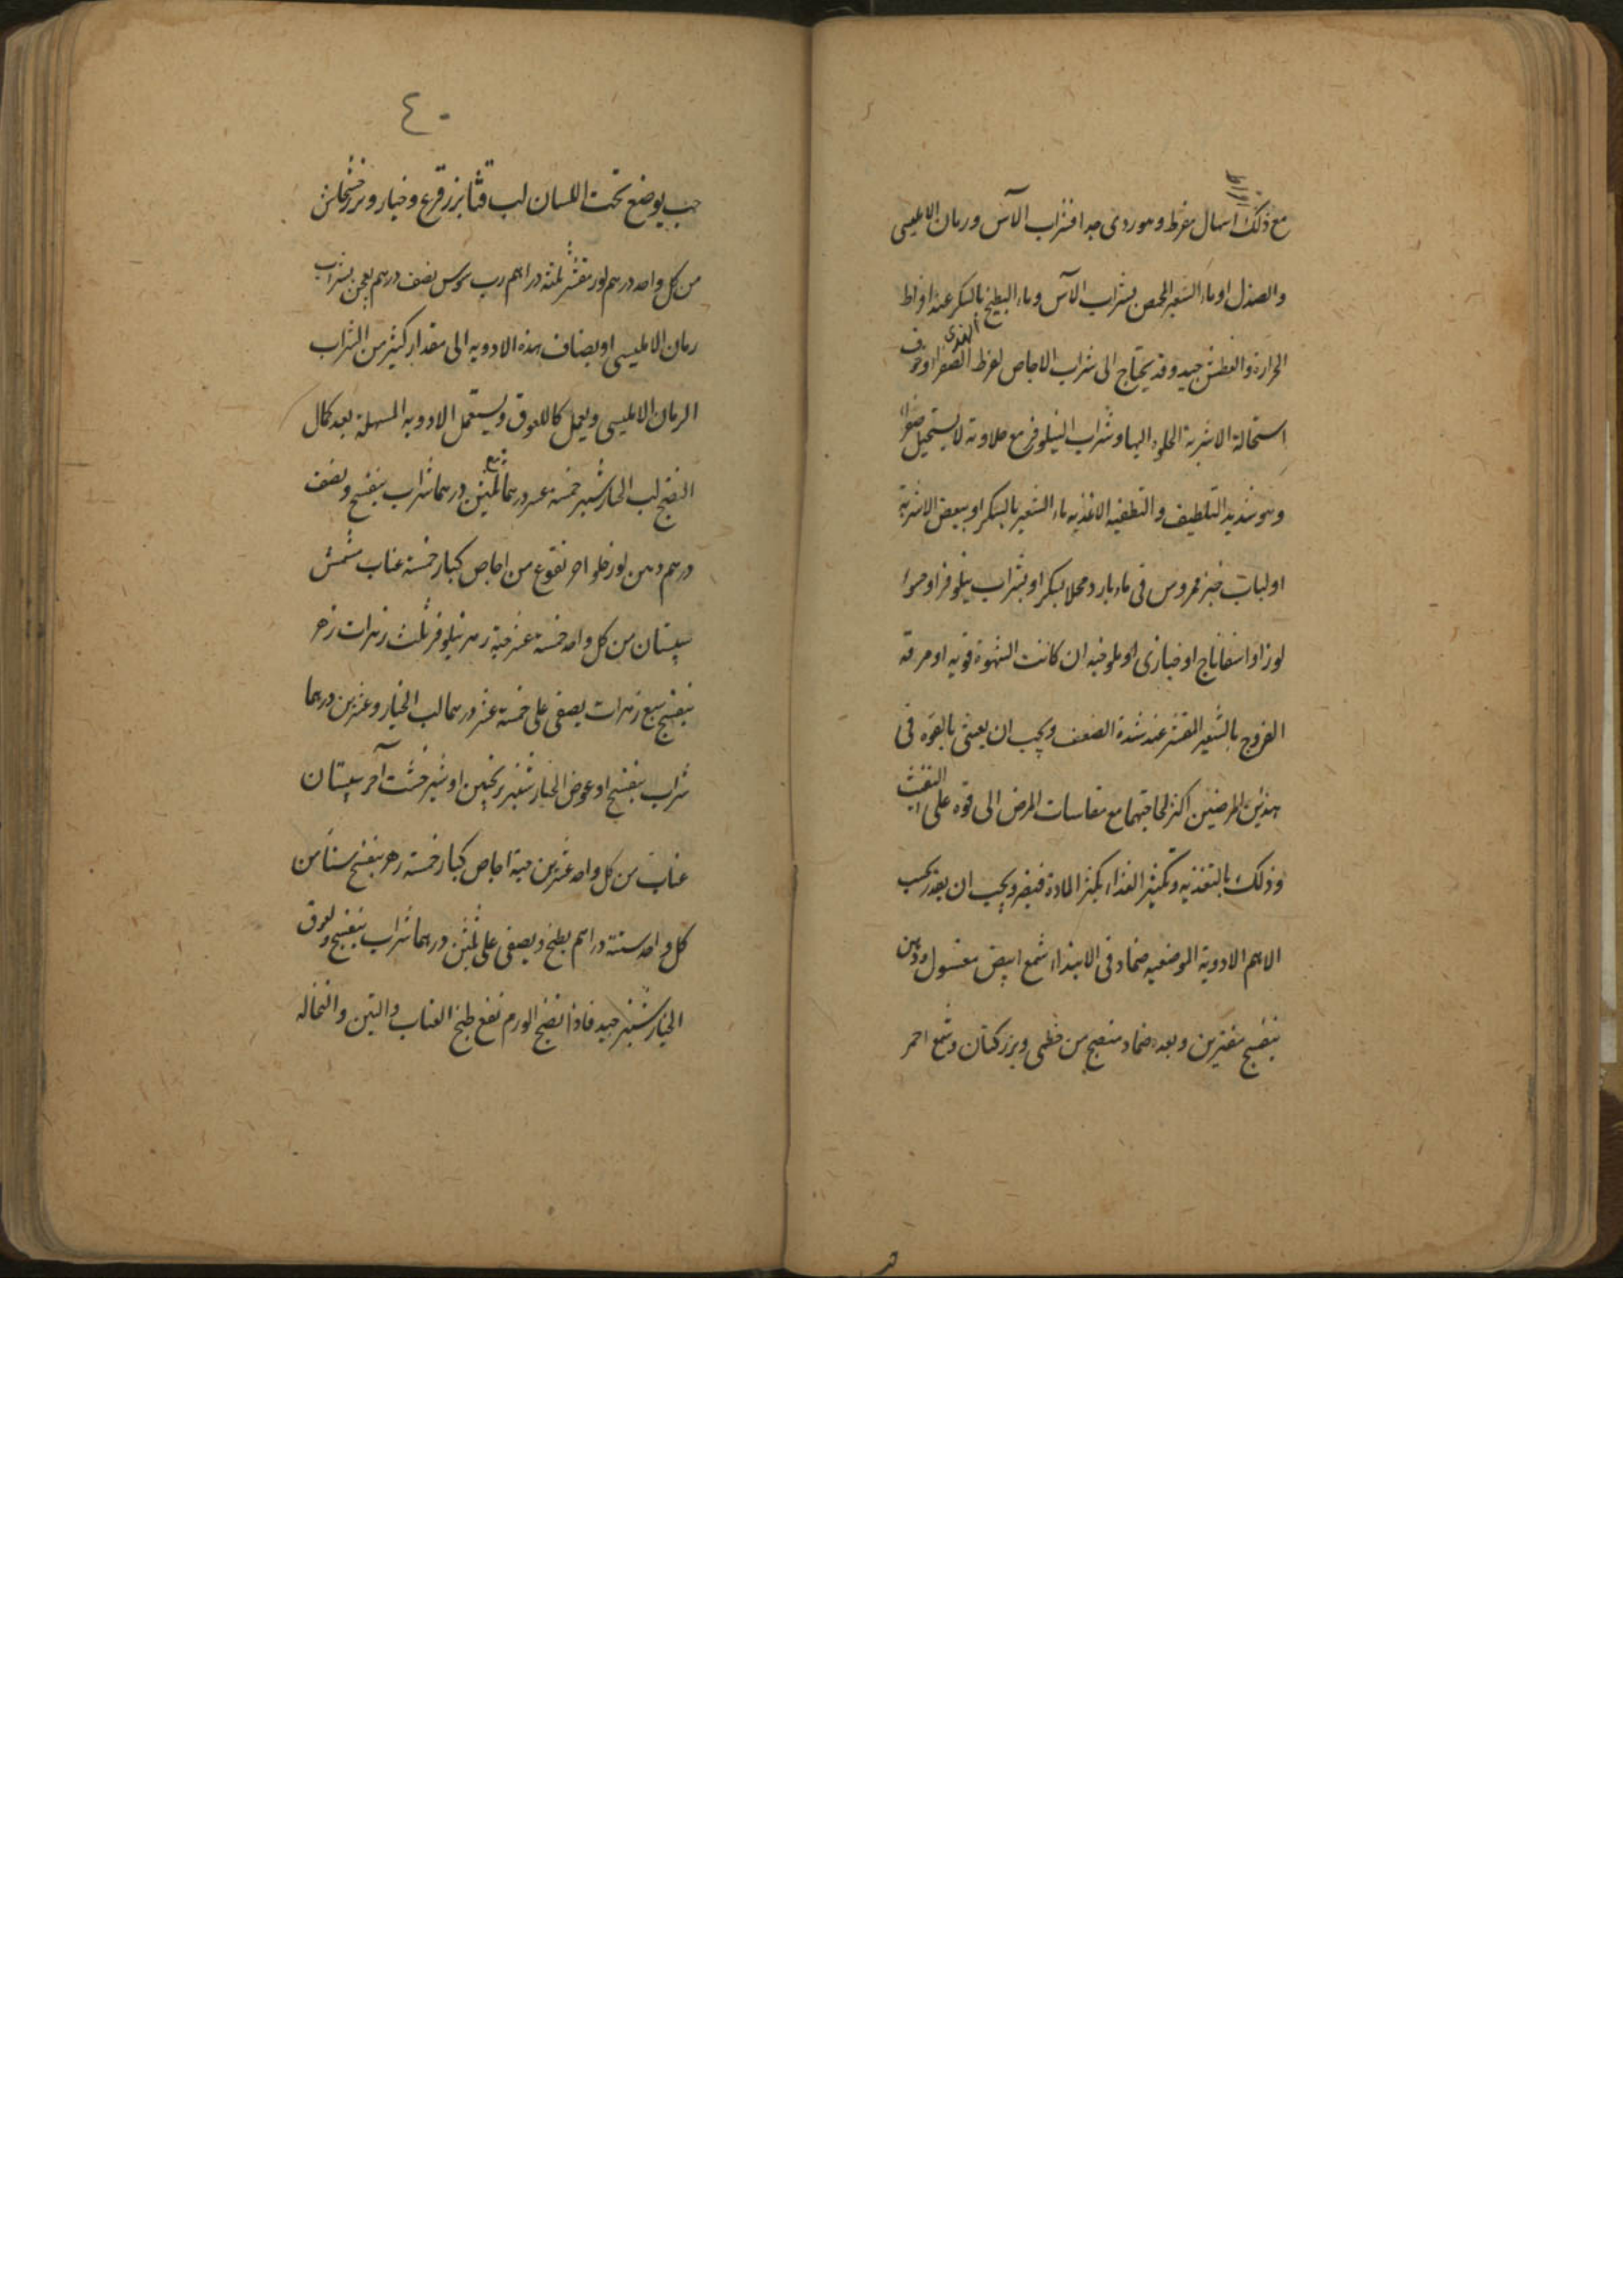 مع ذلك اسهال مفرط وهو ردى جدا فشراب الآس ورمان الامليسى
والصندل او ماء الشعير المحمص بشراب الآس وماء البطيخ بالسكر عند افراط
الحرارة والعطش جيد وقد يحتاج الى شراب الاجاص لفرط الصفرا وخوف
استحالة الاشربة الحلوه اليها وشراب النيلوفر مع حلاوته لا يستحيل صفراء
وهو شديد التلطيف والتطفيه الاغذيه ماء الشعير بالسكر او ببعض الاشربة
او لباب خبز ممروس فى ماء بارد محلا بسكر او بشراب نيلوفر او حسواء
لوز او اسفاناج او خبازى او ملوخيه ان كانت الشهوة قويه او مرقه
الفروج بالشعير المقشر عند شدة الضعف ويجب ان يعتنى بالقوه فى
هذين المرضين اكثر لحاجتهما مع مقاسات المرض الى قوه على النفث
وذلك بالتغذيه وتكثير الغذاء يكثر المادة فيضر ويجب ان يقدر بحسب
الاهم الادوية الموضعيه ضماد فى الابتداء شمع ابيض مغسول ودهن
بنفسج مفترين وبعده ضماد منضج من خطمى وبزر كتان وشمع احمر
٤٠
حب يوضع تحت اللسان لب قثا بزر قرع وخيار وبزر خشخاش
من كل واحد درهم لوز مقشر ثلثه دراهم رب سوس نصف درهم يعجن بشراب
رمان الامليسى او يضاف هذه الادويه الى مقدار كثير من الشراب
الرمان الامليسى ويعمل كاللعوق ويستعمل الادويه المسهلة بعد كمال
النضج لب الخيارشنبر خمسة عشر درهما مع ثلثين درهما شراب بنفسج ونصف
درهم دهن لوز حلو اخر نقوع من اجاص كبار خمسة عناب مشمش
سپستان من كل واحد خمسة عشر حبة زهر نيلوفر ثلث زهرات زهر
بنفسج سبع زهرات يصفى على خمسة عشر درهما لب الخيار وعشرين درهما
شراب بنفسج او عوض الخيارشنبر ترنجبين او شيرخشت آخر سپستان
عناب من كل واحد عشرين حبة اجاص كبار خمسة زهر بنفسج سنا من
كل واحد ستة دراهم يطبخ ويصفى على ثلثين درهما شراب بنفسج ولعوق
الخيارشنبر جيد فاذا نضج الورم نفع طبخ العناب والتين والنخاله